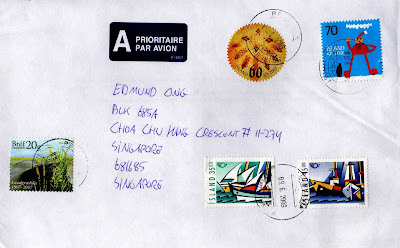 A PRIORITAIRE
PAR AVION
00
70
ÍSLAND
EDMUND ONG
BLK 685A
CHOA CHU KANG CRESCENT # 11-274
SINGAPORE
681685
SINGAPORE
20g
ÍSLAND 35.00
ÍSLAND